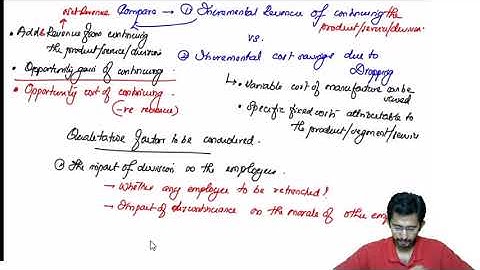 Net Revenue Compare → ① Incremental Revenues of continuing the product/service/division
• Added Revenue from continuing the product/service/division
vs.
• Opportunity gain of continuing
② Incremental cost savings due to Dropping
• Opportunity cost of continuing (-ve relevance)
• Variable cost of manufacture can be
• Specific fixed costs attributable to the product/segment/service
Qualitative factors to be considered.
The impact of division on the employees.
→ Whether any employee to be retrenched?
→ Impact of discontinuance on the morale of other